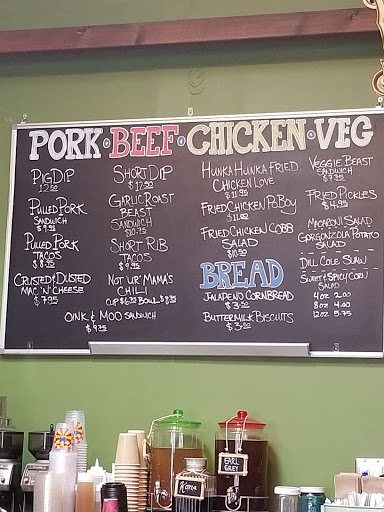 PORK • BEEF • CHICKEN • VEG
PIG DIP
12.50
PULLED PORK
SANDWICH
$9.95
PULLED PORK
TACOS
$8.25
CRUSTED & DUSTED
MAC 'N' CHEESE
$7.95
SHORT DIP
$12.50
GARLIC ROAST
BEAST
SANDWICH
$10.75
SHORT RIB
TACOS
$9.95
NOT UR' MAMA'S
CHILI
CUP $6.25 BOWL $8.25
OINK & MOO SANDWICH
$9.75
HUNKA HUNKA FRIED
CHICKEN LOVE
$11.95
FRIED CHICKEN PO'BOY
$11.00
FRIED CHICKEN COBB
SALAD
$10.50
BREAD
JALAPENO CORNBREAD
$3.50
BUTTERMILK BISCUITS
$3.50
VEGGIE BEAST
SANDWICH
$7.75
FRIED PICKLES
$4.95
MACARONI SALAD
GORGONZOLA POTATO
SALAD
DILL COLE SLAW
SWEET & SPICY CORN
SALAD
4 OZ 2.00
8 OZ 4.00
12 OZ 5.75
EARL
GREY